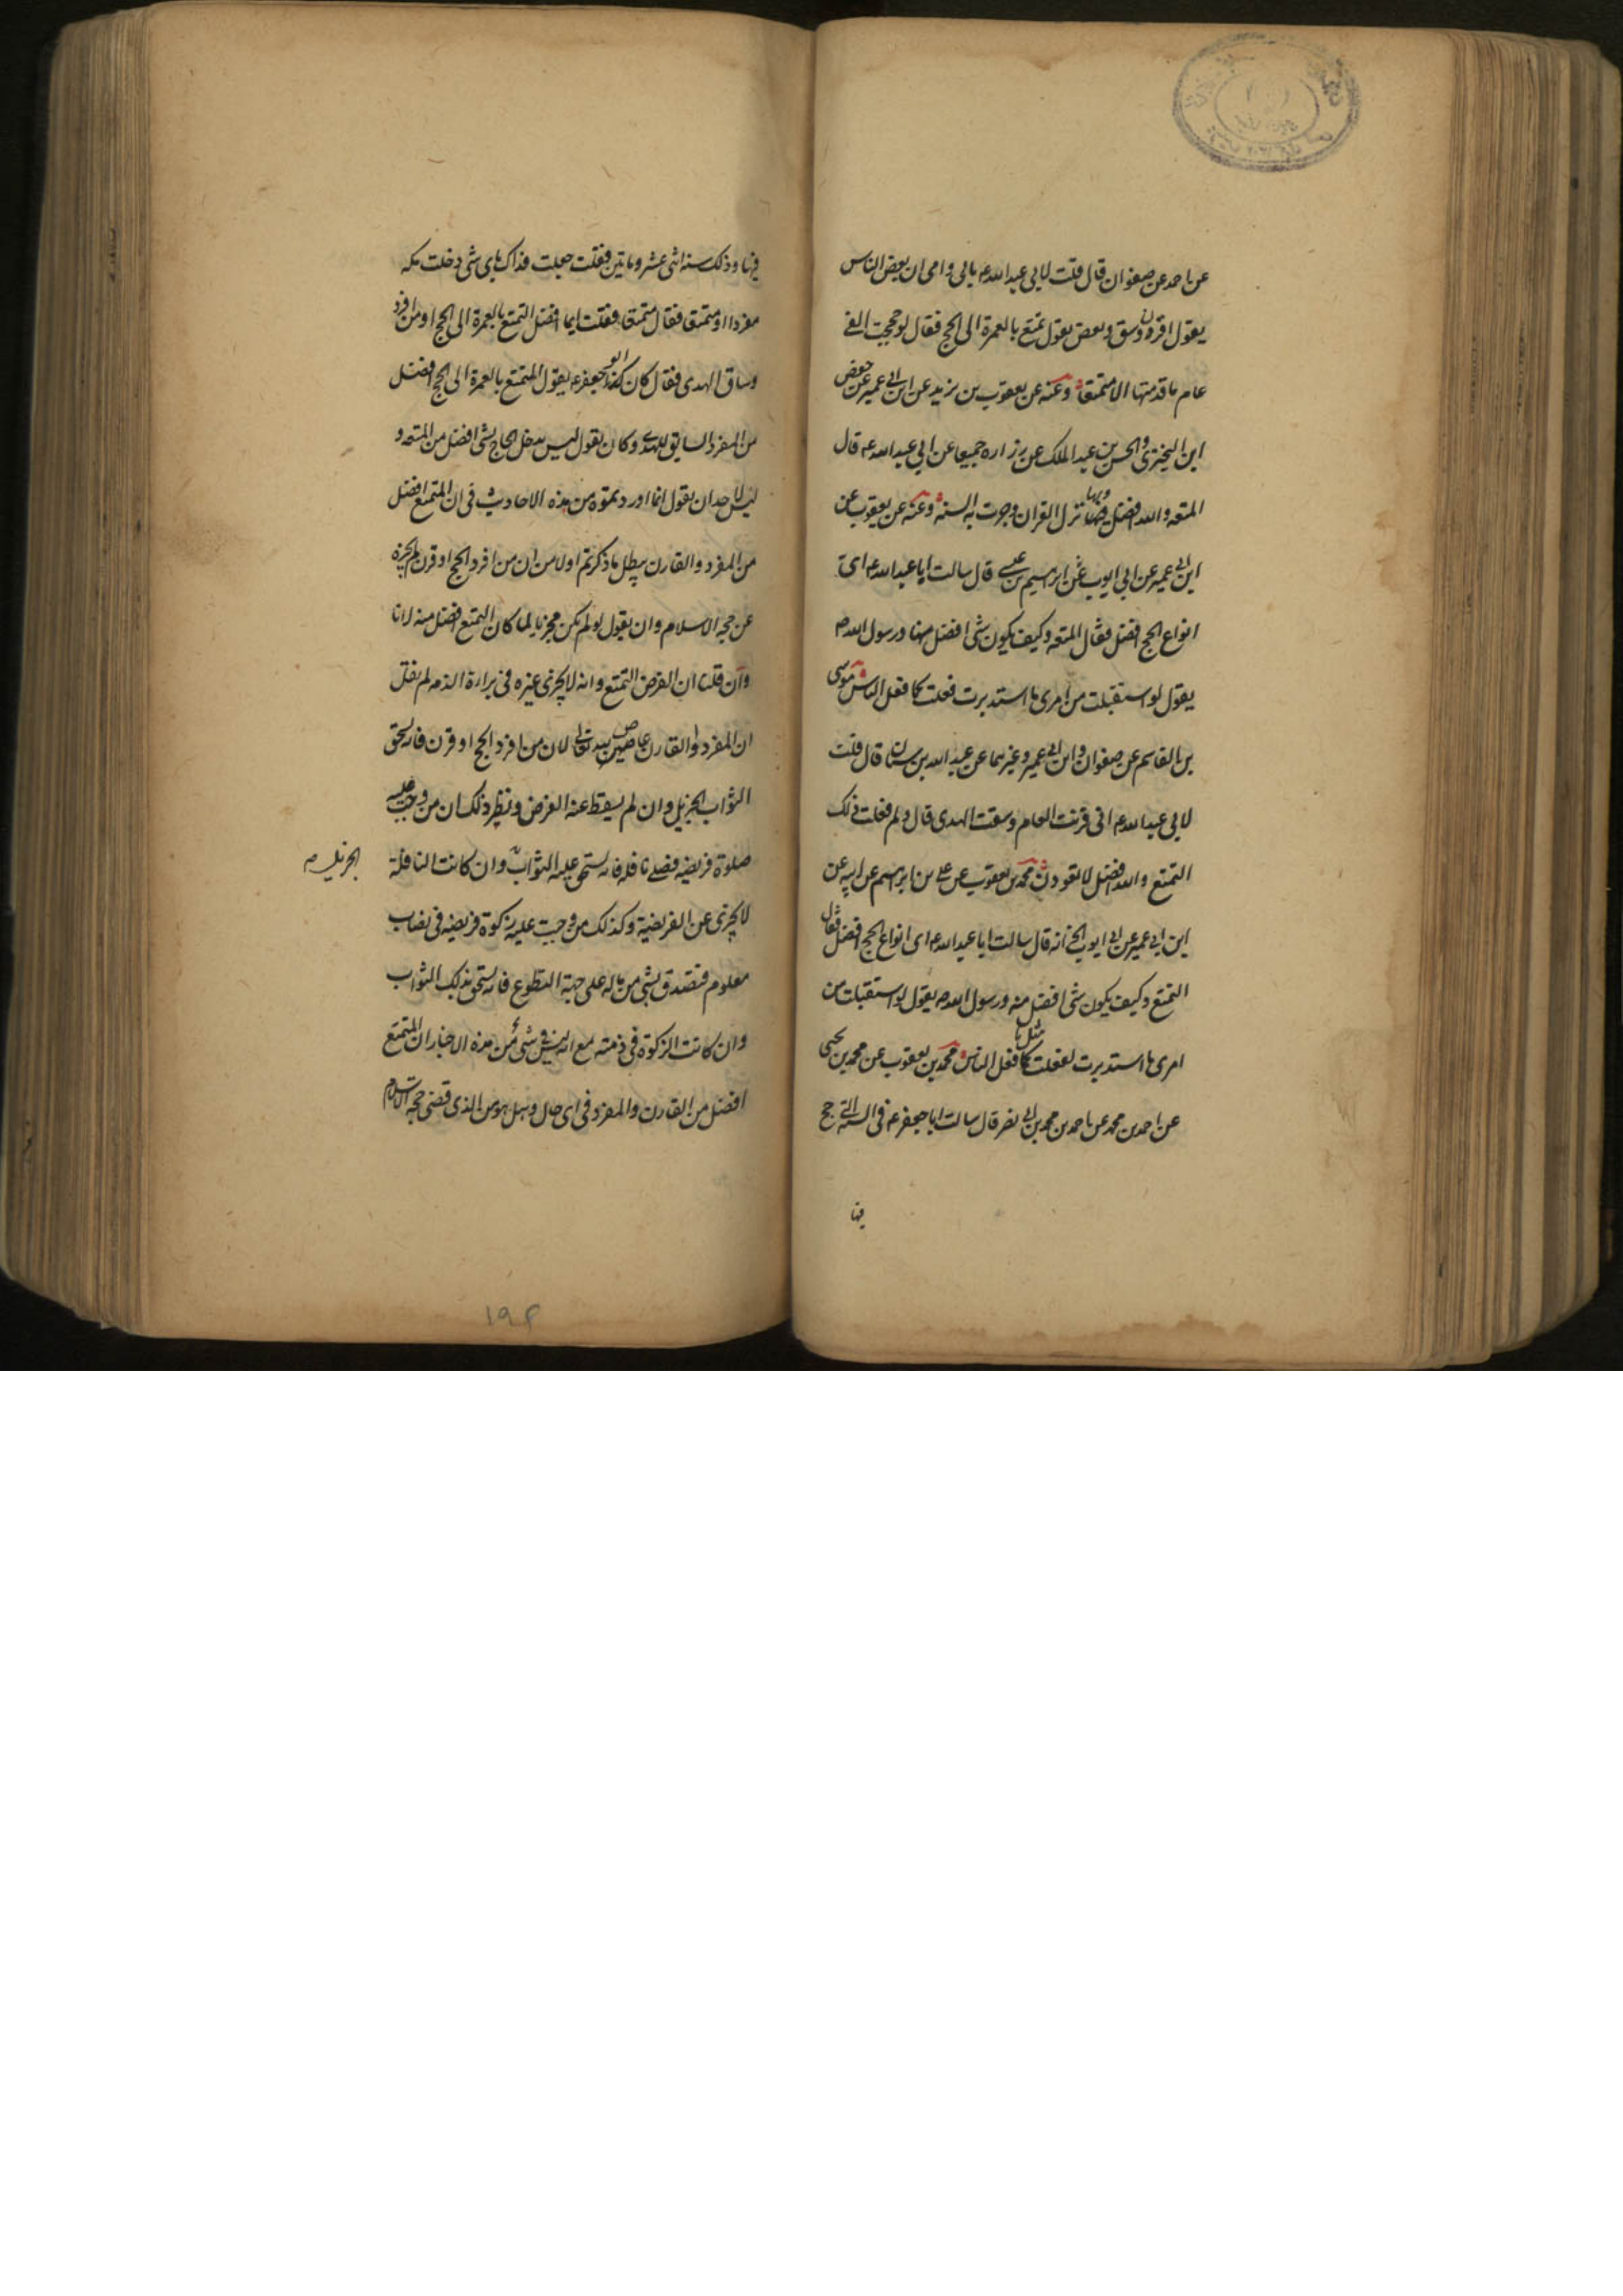 عن احمد عن صفوان قال قلت لابي عبد الله ع بابي وامي ان بعض الناس
يقول اقرن وسق وبعض يقول تمتع بالعمرة الى الحج فقال لو حججت الفي
عام ما قدمتها الا متمتعا وعنه عن يعقوب بن يزيد عن ابن ابي عمير عن حفص
ابن البختري والحسن بن عبد الملك عن زرارة جميعا عن ابي عبد الله ع قال
المتعة والله افضل وبها نزل القران وجرت به السنة وعنه عن يعقوب عن
ابن ابي عمير عن ابي ايوب عن ابرهيم بن عيسى قال سالت ابا عبد الله ع اى
انواع الحج افضل فقال المتعه وكيف يكون شئ افضل منها ورسول الله ص
يقول لو استقبلت من امرى ما استدبرت فعلت كما فعل الناس موسى
بن القاسم عن صفوان وابن ابي عمير وغيرهما عن عبد الله بن سنان قال قلت
لابي عبد الله ع انى قرنت العام وسقت الهدى قال ولم فعلت ذلك
التمتع والله افضل لا تعودن محمد بن يعقوب عن على بن ابرهيم عن ابيه عن
ابن ابي عمير عن ابي ايوب الخ انه قال سالت ابا عبد الله ع اى انواع الحج افضل فقال
التمتع وكيف يكون شئ افضل منه ورسول الله ص يقول لو استقبلت من
امرى ما استدبرت لفعلت مثل ما فعل الناس محمد بن يعقوب عن محمد بن يحيى
عن احمد بن محمد عن احمد بن محمد بن ابي نصر قال سالت ابا جعفر ع فى السنة التى حج
فيها
فيها وذلك سنة اثنى عشر وماتين فقلت جعلت فداك باى شئ دخلت مكه
مفردا او متمتعا فقال متمتعا فقلت ايما افضل التمتع بالعمرة الى الحج او من افرد
وساق الهدى فقال كان ابو جعفر ع يقول المتمتع بالعمرة الى الحج افضل
من المفرد السايق للهدى وكان يقول ليس يدخل الحاج بشئ افضل من المتعه و
ليس لاحد ان يقول انما اوردتموه من هذه الاحاديث فى ان المتمتع افضل
من المفرد والقارن يبطل ما ذكرتم اولا من ان من افرد الحج او قرن لم يجزه
عن حجه الاسلام وان يقول لو لم يكن مجزيا لما كان التمتع افضل منه لانا
وان قلنا ان الفرض التمتع وانه لا يجزى غيره فى براءة الذمه لم نقل
ان المفرد والقارن عاصيين لله تعالى لان من افرد الحج او قرن فانه يستحق
الثواب الجزيل وان لم يسقط عنه الفرض ونظير ذلك ان من وجب عليه
صلوة فريضه فصلى نافله فانه يستحق عليه الثواب وان كانت النافلة
الجزيل
لا يجزى عن الفريضة وكذلك من وجبت عليه زكوة فريضه فى نصاب
معلوم فتصدق بشئ من ماله على جهة التطوع فانه يستحق بذلك الثواب
وان كانت الزكوة فى ذمته مع انه ليس فى شئ من هذه الاخبار ان المتمتع
افضل من القارن والمفرد فى اى حال وهل هو من الذى قضى حجه الاسلام
۱۹۴